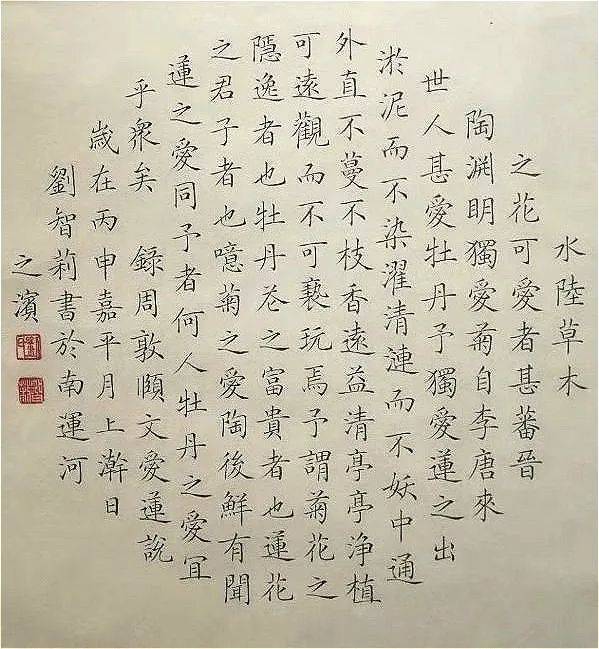 水陸草木
之花可愛者甚蕃晉
陶淵明獨愛菊自李唐來
世人甚愛牡丹予獨愛蓮之出
淤泥而不染濯清漣而不妖中通
外直不蔓不枝香遠益清亭亭淨植
可遠觀而不可褻玩焉予謂菊花之
隱逸者也牡丹花之富貴者也蓮花
之君子者也噫菊之愛陶後鮮有聞
蓮之愛同予者何人牡丹之愛宜
乎衆矣 録周敦頤文愛蓮説
歲在丙申嘉平月上澣日
劉智莉書於南運河
之濱